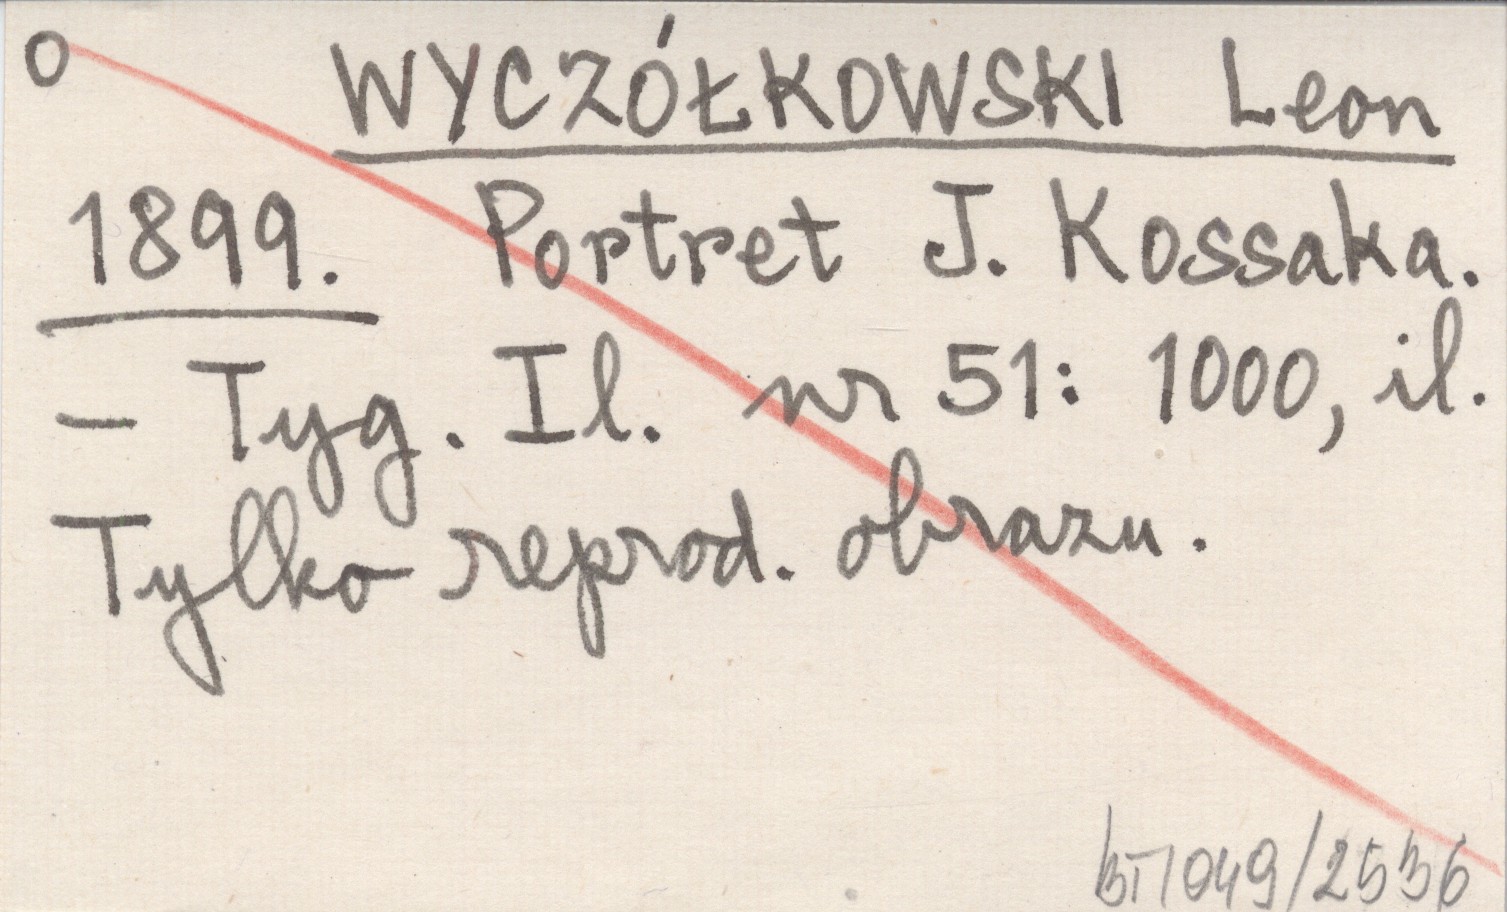 O WYCZÓŁKOWSKI Leon
1899. Portret J. Kossaka.
– Tyg. Il. nr 51: 1000, il.
Tylko reprod. obrazu.